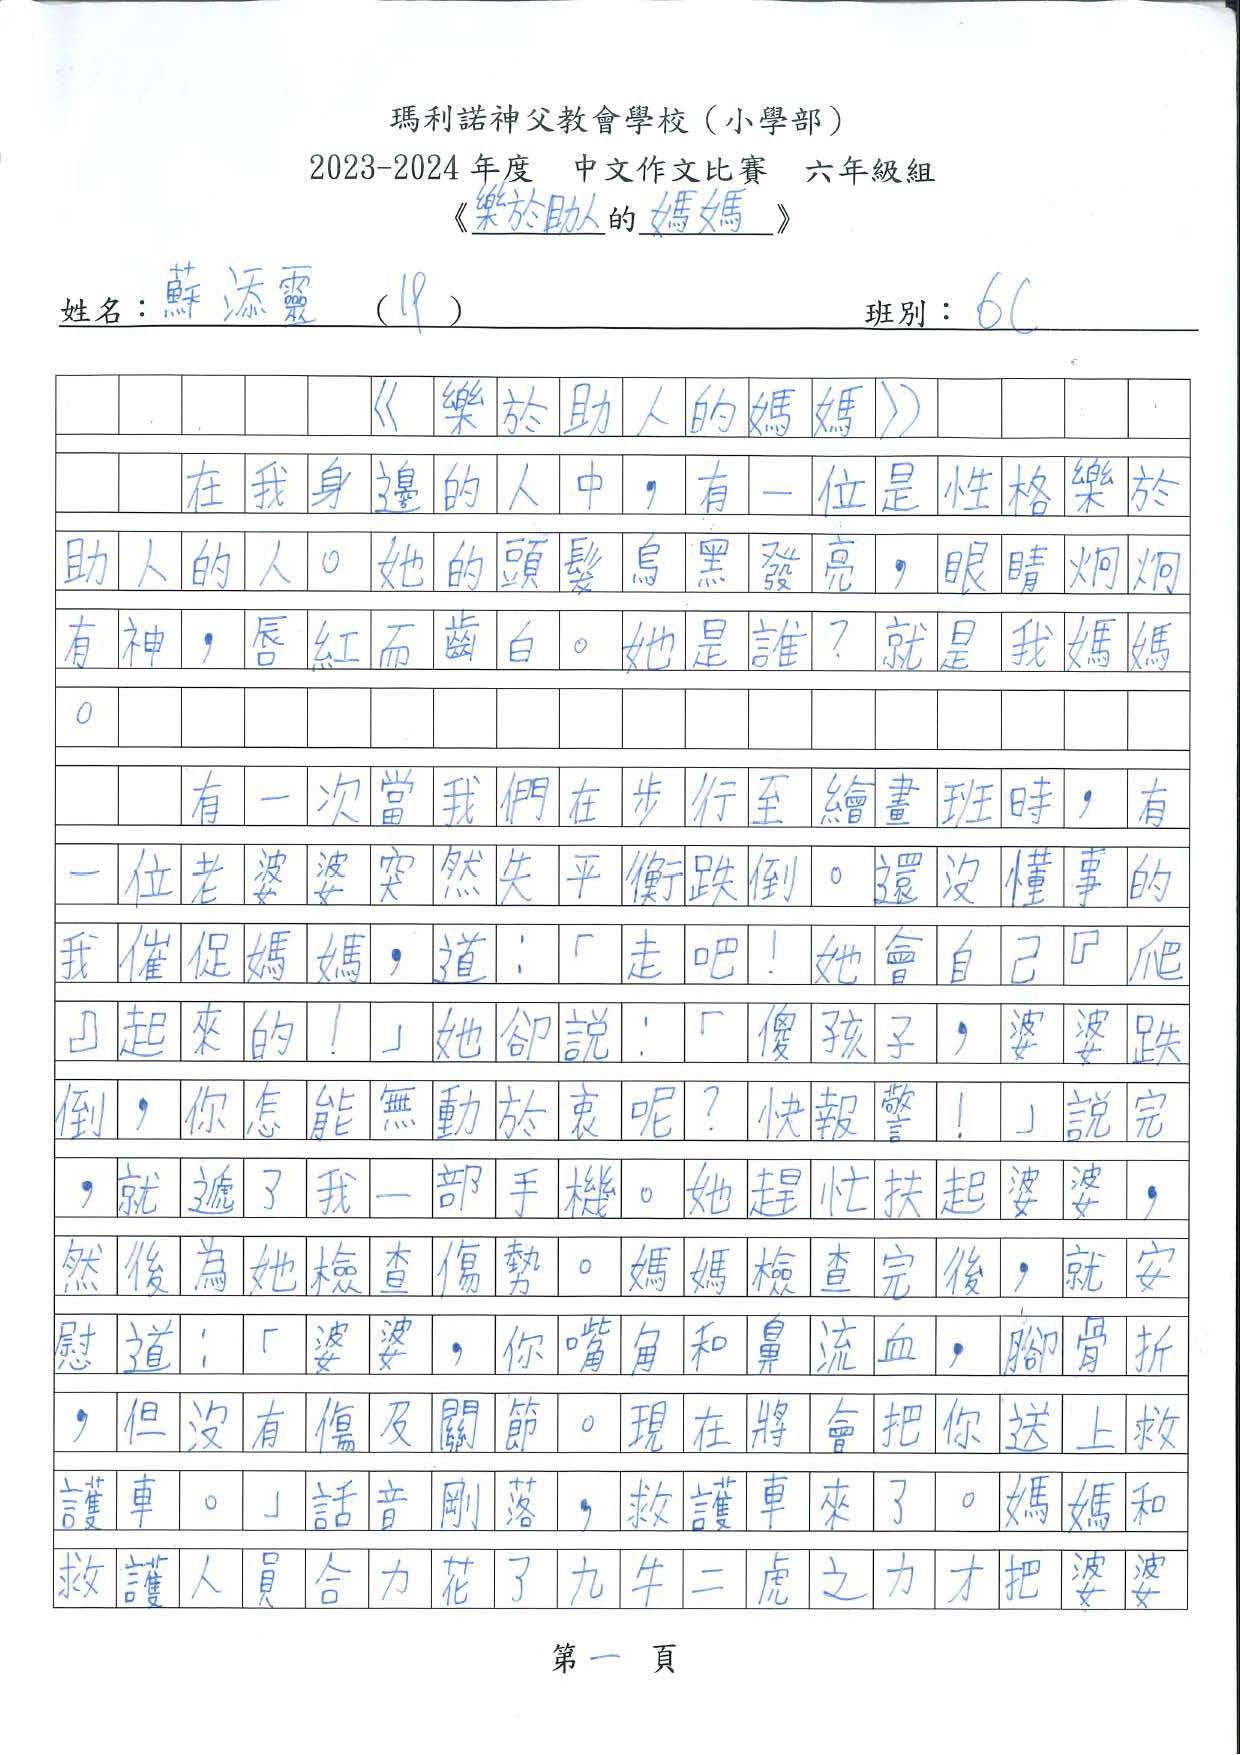 瑪利諾神父教會學校（小學部）
2023-2024年度 中文作文比賽 六年級組
《樂於助人的媽媽》
姓名：蘇添靈 (19) 班別：6C
《樂於助人的媽媽》
在我身邊的人中，有一位是性格樂於
助人的人。她的頭髮烏黑發亮，眼睛炯炯
有神，唇紅而齒白。她是誰？就是我媽媽
。
有一次當我們在步行至繪畫班時，有
一位老婆婆突然失平衡跌倒。還沒懂事的
我催促媽媽，道：「走吧！她會自己『爬
』起來的！」她卻説：「傻孩子，婆婆跌
倒，你怎能無動於衷呢？快報警！」説完
，就遞了我一部手機。她趕忙扶起婆婆，
然後為她檢查傷勢。媽媽檢查完後，就安
慰道：「婆婆，你嘴角和鼻流血，腳骨折
，但沒有傷及關節。現在將會把你送上救
護車。」話音剛落，救護車來了。媽媽和
救護人員合力花了九牛二虎之力才把婆婆
第一頁